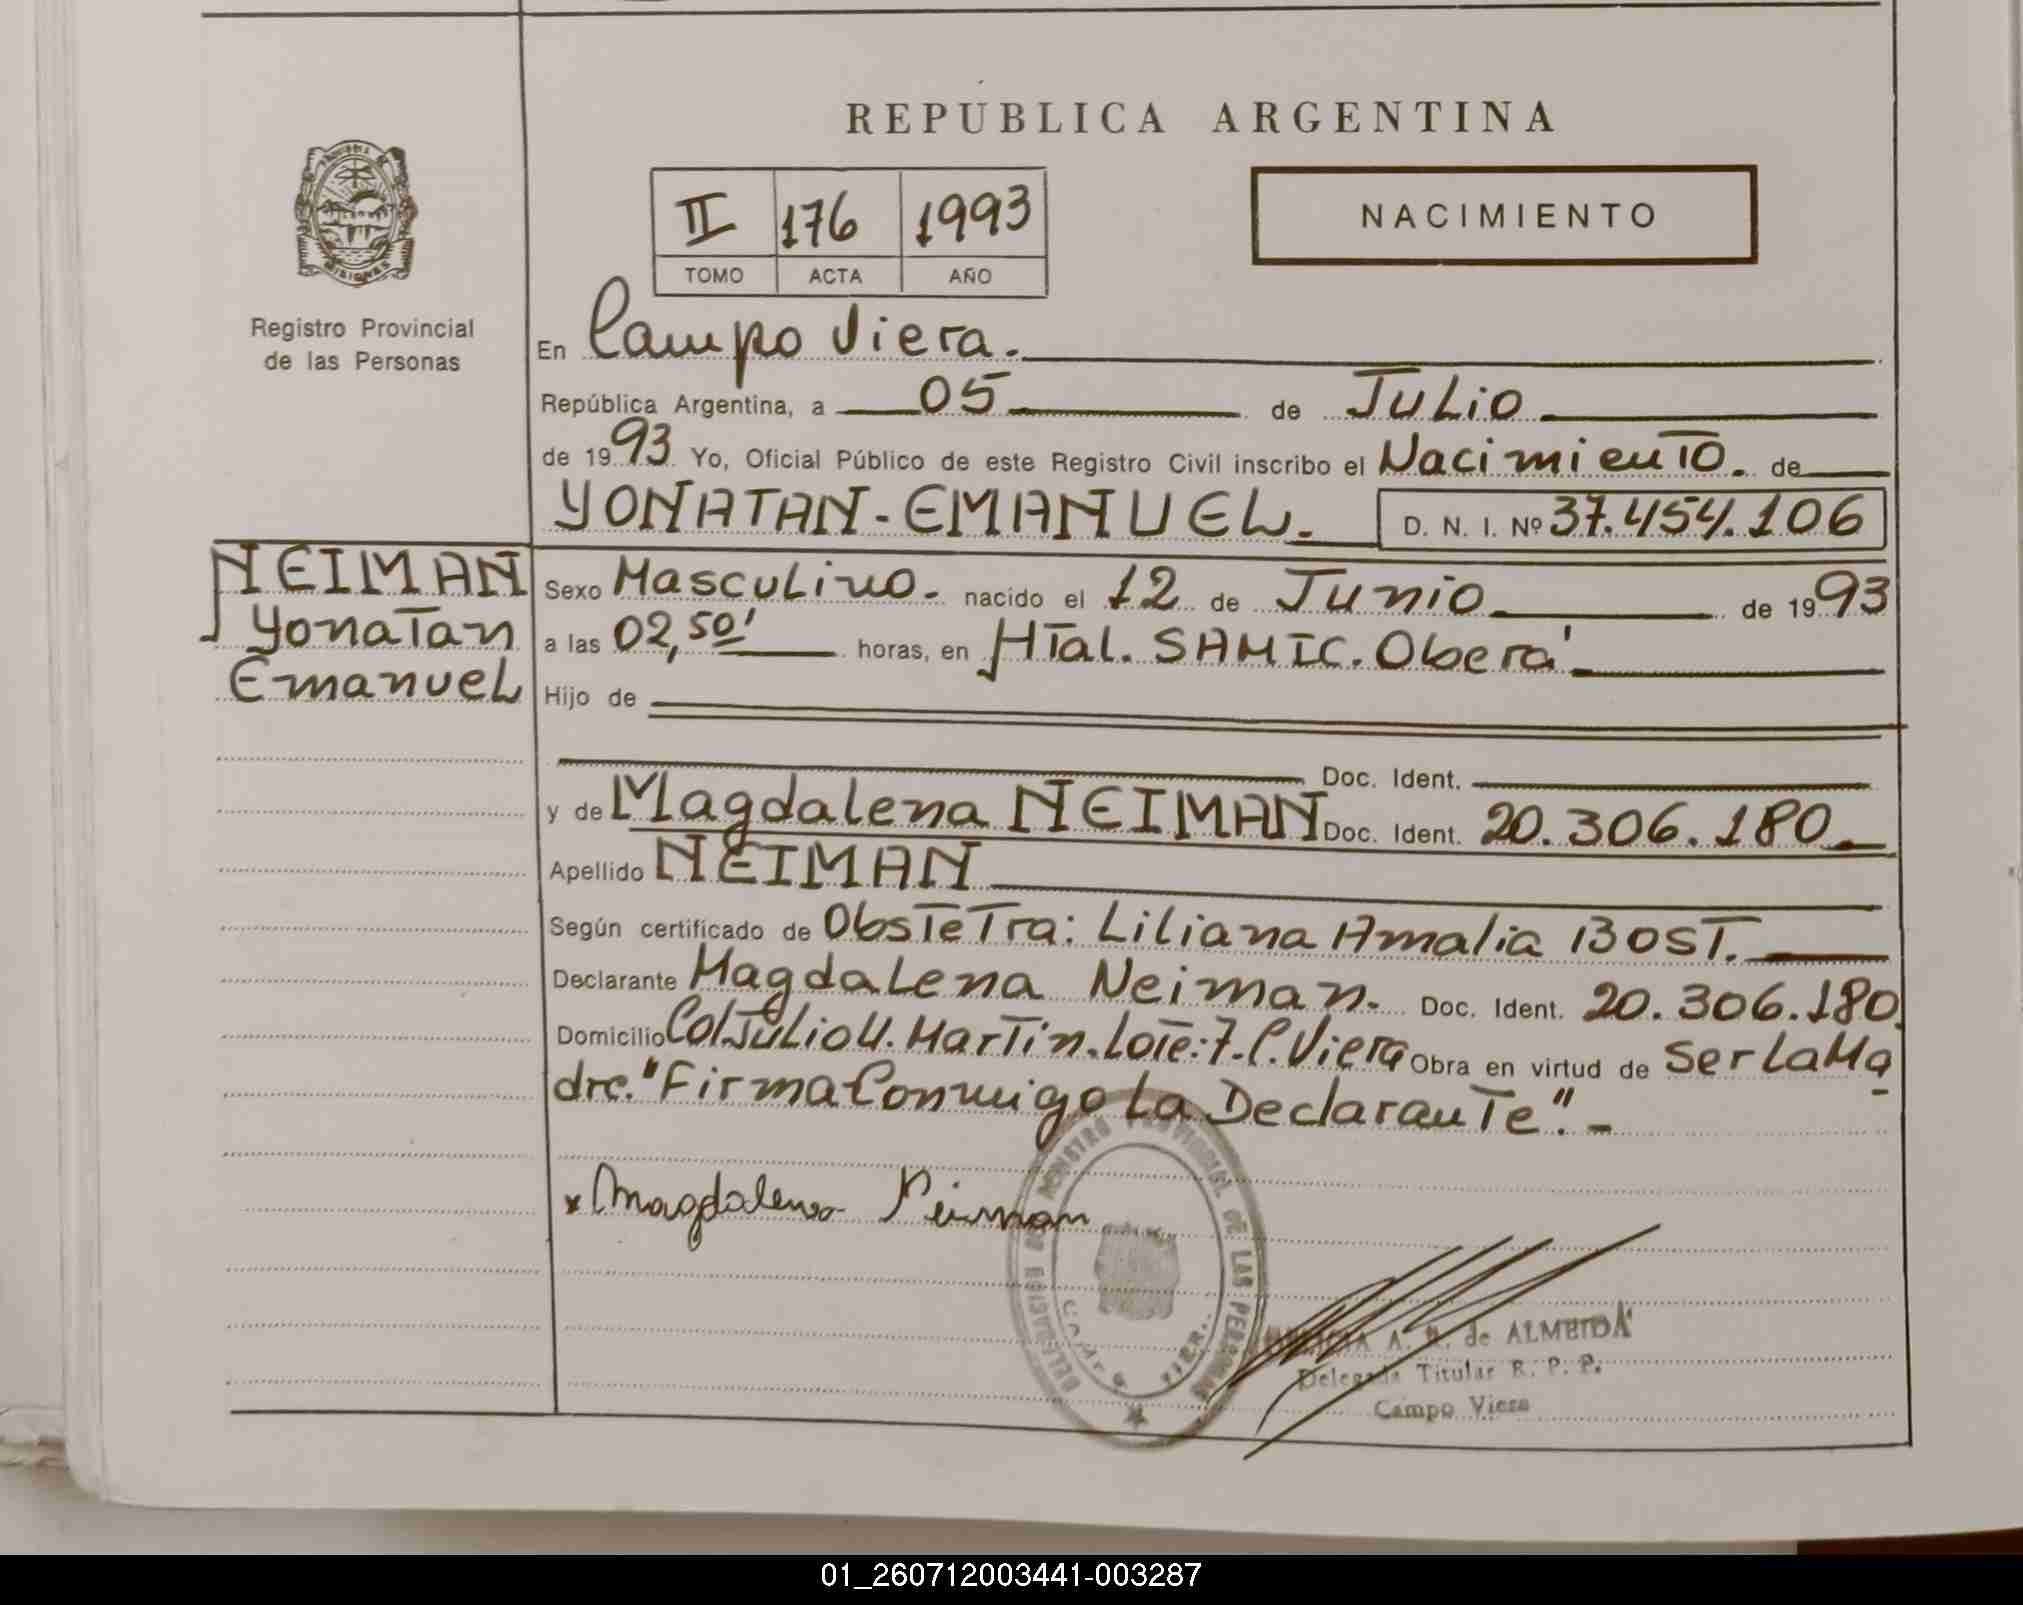 REPÚBLICA ARGENTINA
PROVINCIA DE
MISIONES
Registro Provincial
de las Personas
II 176 1993
TOMO ACTA AÑO
NACIMIENTO
En Campo Viera.
República Argentina, a 05 de Julio
de 1993 Yo, Oficial Público de este Registro Civil inscribo el Nacimiento. de
YONATAN-EMANUEL. D. N. I. Nº 37.454.106
NEIMAN
Yonatan
Emanuel
Sexo Masculino. nacido el 12 de Junio de 1993
a las 02,50' horas, en Htal. SAMIC. Oberá
Hijo de
Doc. Ident.
y de Magdalena NEIMAN Doc. Ident. 20.306.180
Apellido NEIMAN
Según certificado de Obstetra: Liliana Amalia BOST.
Declarante Magdalena Neiman. Doc. Ident. 20.306.180
Domicilio Col. Julio U. Martin. Lote: 7. C. Viera Obra en virtud de Ser La Ma
dre. "Firma Conmigo La Declarante". -
x Magdalena Neiman
DELEGACION REGISTRO PROVINCIAL DE LAS PERSONAS
A. de ALMEIDA
Delegada Titular R. P. P.
Campo Viera
01_260712003441-003287